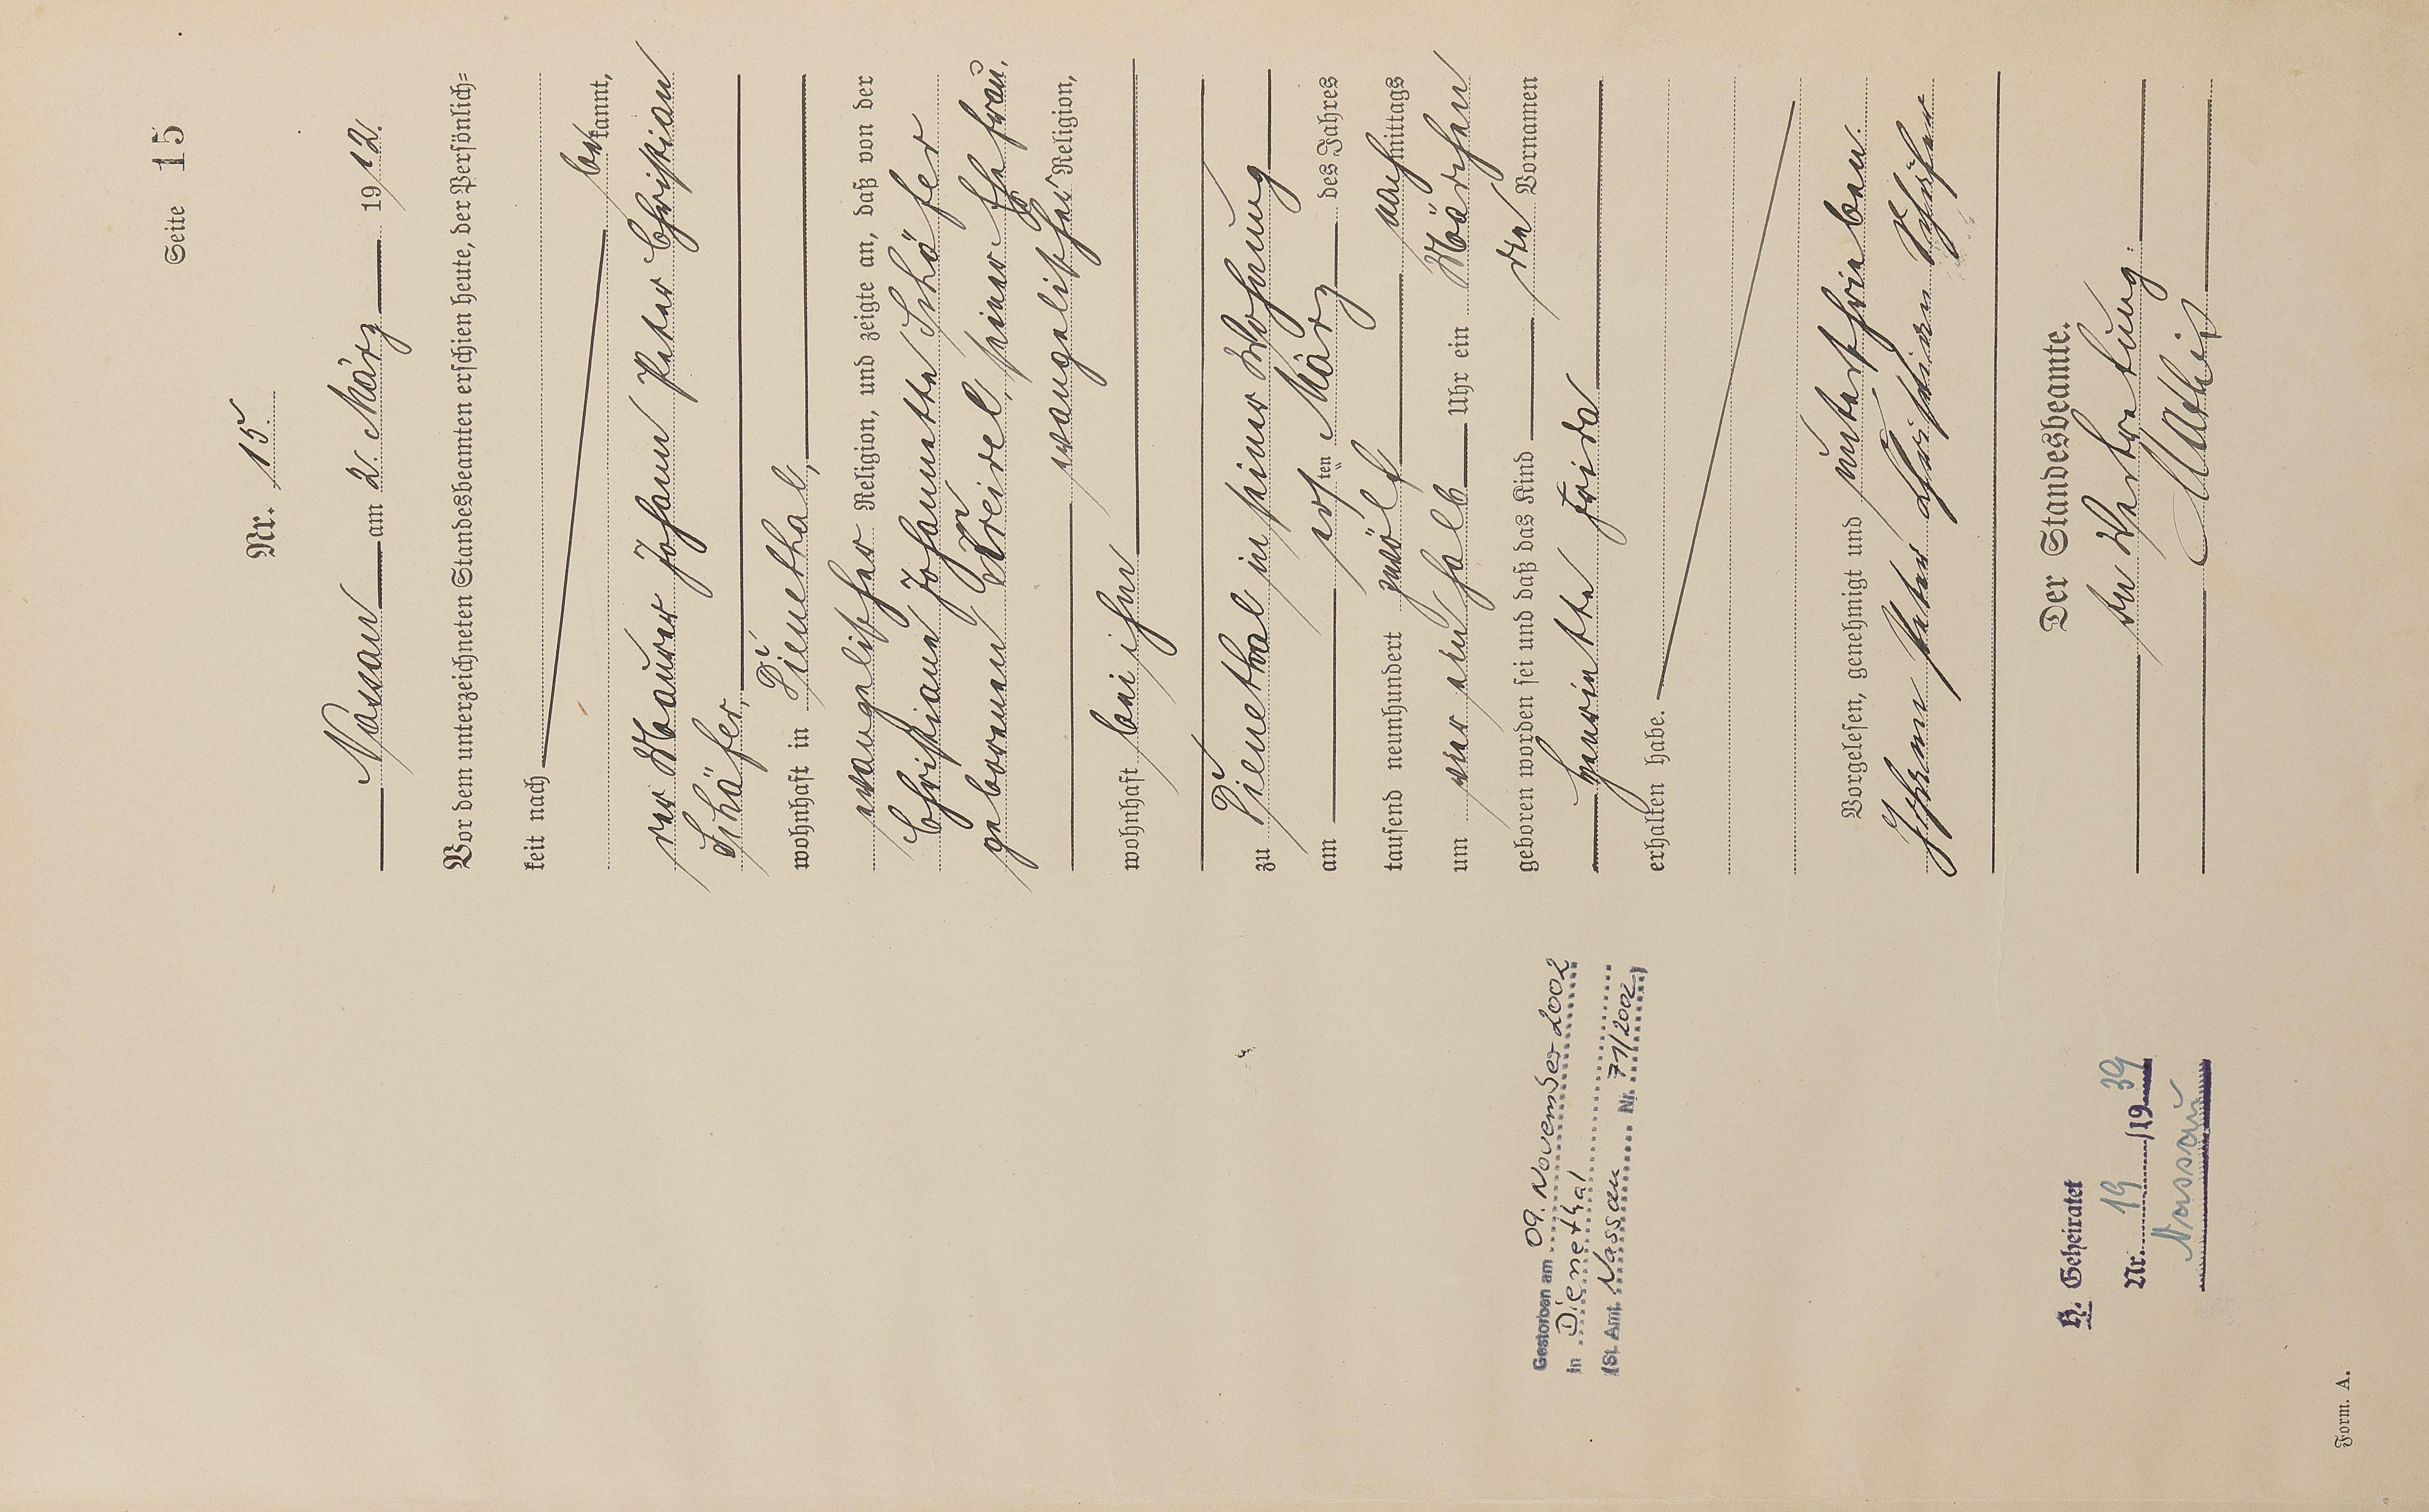 Seite 15
Nr. 15.
Nassau am 2. März 1912.
Vor dem unterzeichneten Standesbeamten erschien heute, der Persönlich=
keit nach
bekannt,
der Maurer Johann Peter Christian
Schäfer,
wohnhaft in Dienethal,
evangelischer Religion, und zeigte an, daß von der
Christiane Johannette Schäfer
geborenen Kreidel, seiner Ehefrau,
evangelischer Religion,
wohnhaft bei ihm
zu Dienethal in seiner Wohnung
am ersten März des Jahres
tausend neunhundert zwölf nachmittags
um vier ein halb Uhr ein Mädchen
geboren worden sei und daß das Kind die Vornamen
Henriette Frida
erhalten habe.
Vorgelesen, genehmigt und unterschrieben.
Johann Peter Christian Schäfer
Der Standesbeamte.
In Vertretung:
Gestorben am 09. November 2002
in Dienethal
(St. Amt. Nassau Nr. 71/2002)
H. Geheiratet
Nr. 19/1939
Nassau
Form. A.